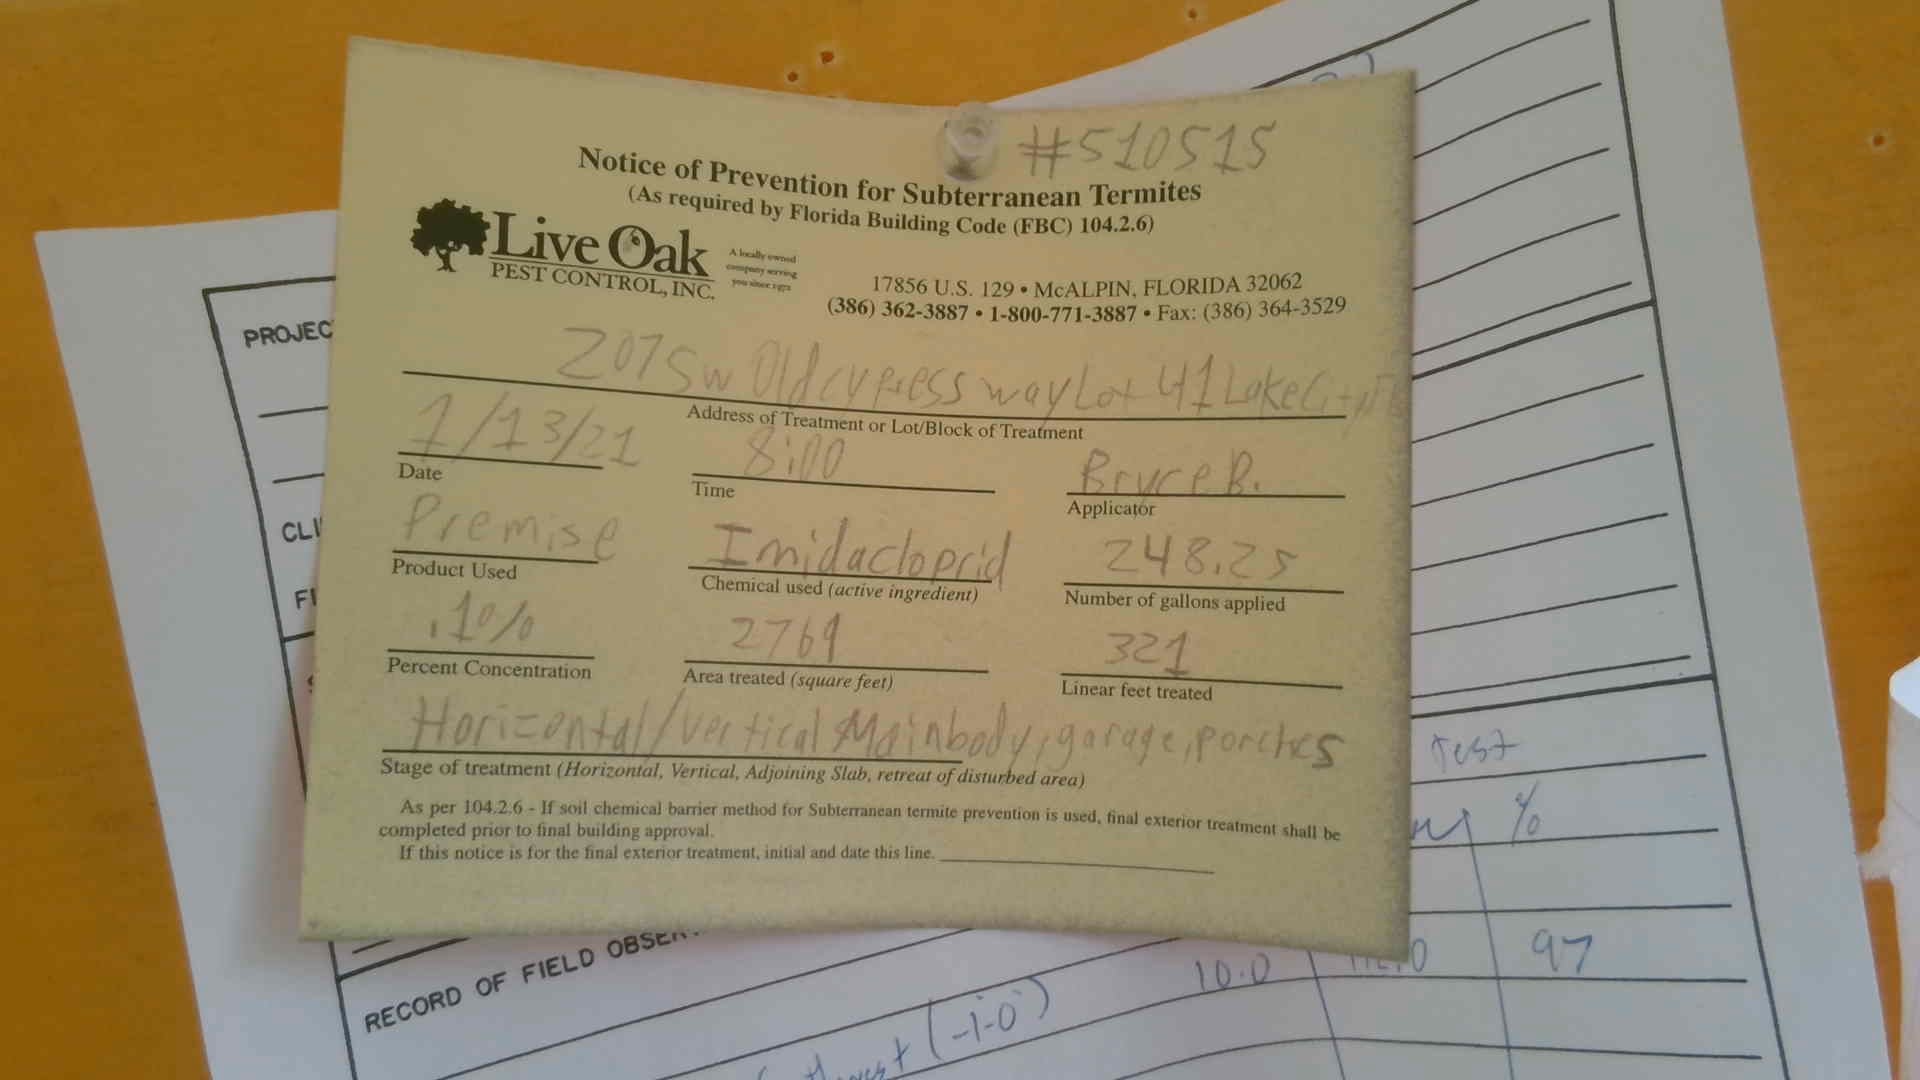 #510515
Notice of Prevention for Subterranean Termites
(As required by Florida Building Code (FBC) 104.2.6)
Live Oak
PEST CONTROL, INC.
A locally owned
company serving
you since 1971
17856 U.S. 129 • McALPIN, FLORIDA 32062
(386) 362-3887 • 1-800-771-3887 • Fax: (386) 364-3529
207 SW Old cypress way Lot 41 Lake City FL
Address of Treatment or Lot/Block of Treatment
1/13/21 8:00 Bryce B.
Date Time Applicator
Premise Imidacloprid 248.25
Product Used Chemical used (active ingredient) Number of gallons applied
.1% 2769 321
Percent Concentration Area treated (square feet) Linear feet treated
Horizontal/Vertical Mainbody, garage, porches
Stage of treatment (Horizontal, Vertical, Adjoining Slab, retreat of disturbed area)
As per 104.2.6 - If soil chemical barrier method for Subterranean termite prevention is used, final exterior treatment shall be
completed prior to final building approval.
If this notice is for the final exterior treatment, initial and date this line.
PROJEC
CLI
FI
Test
%
RECORD OF FIELD OBSER
10.0 97
(-1-0)